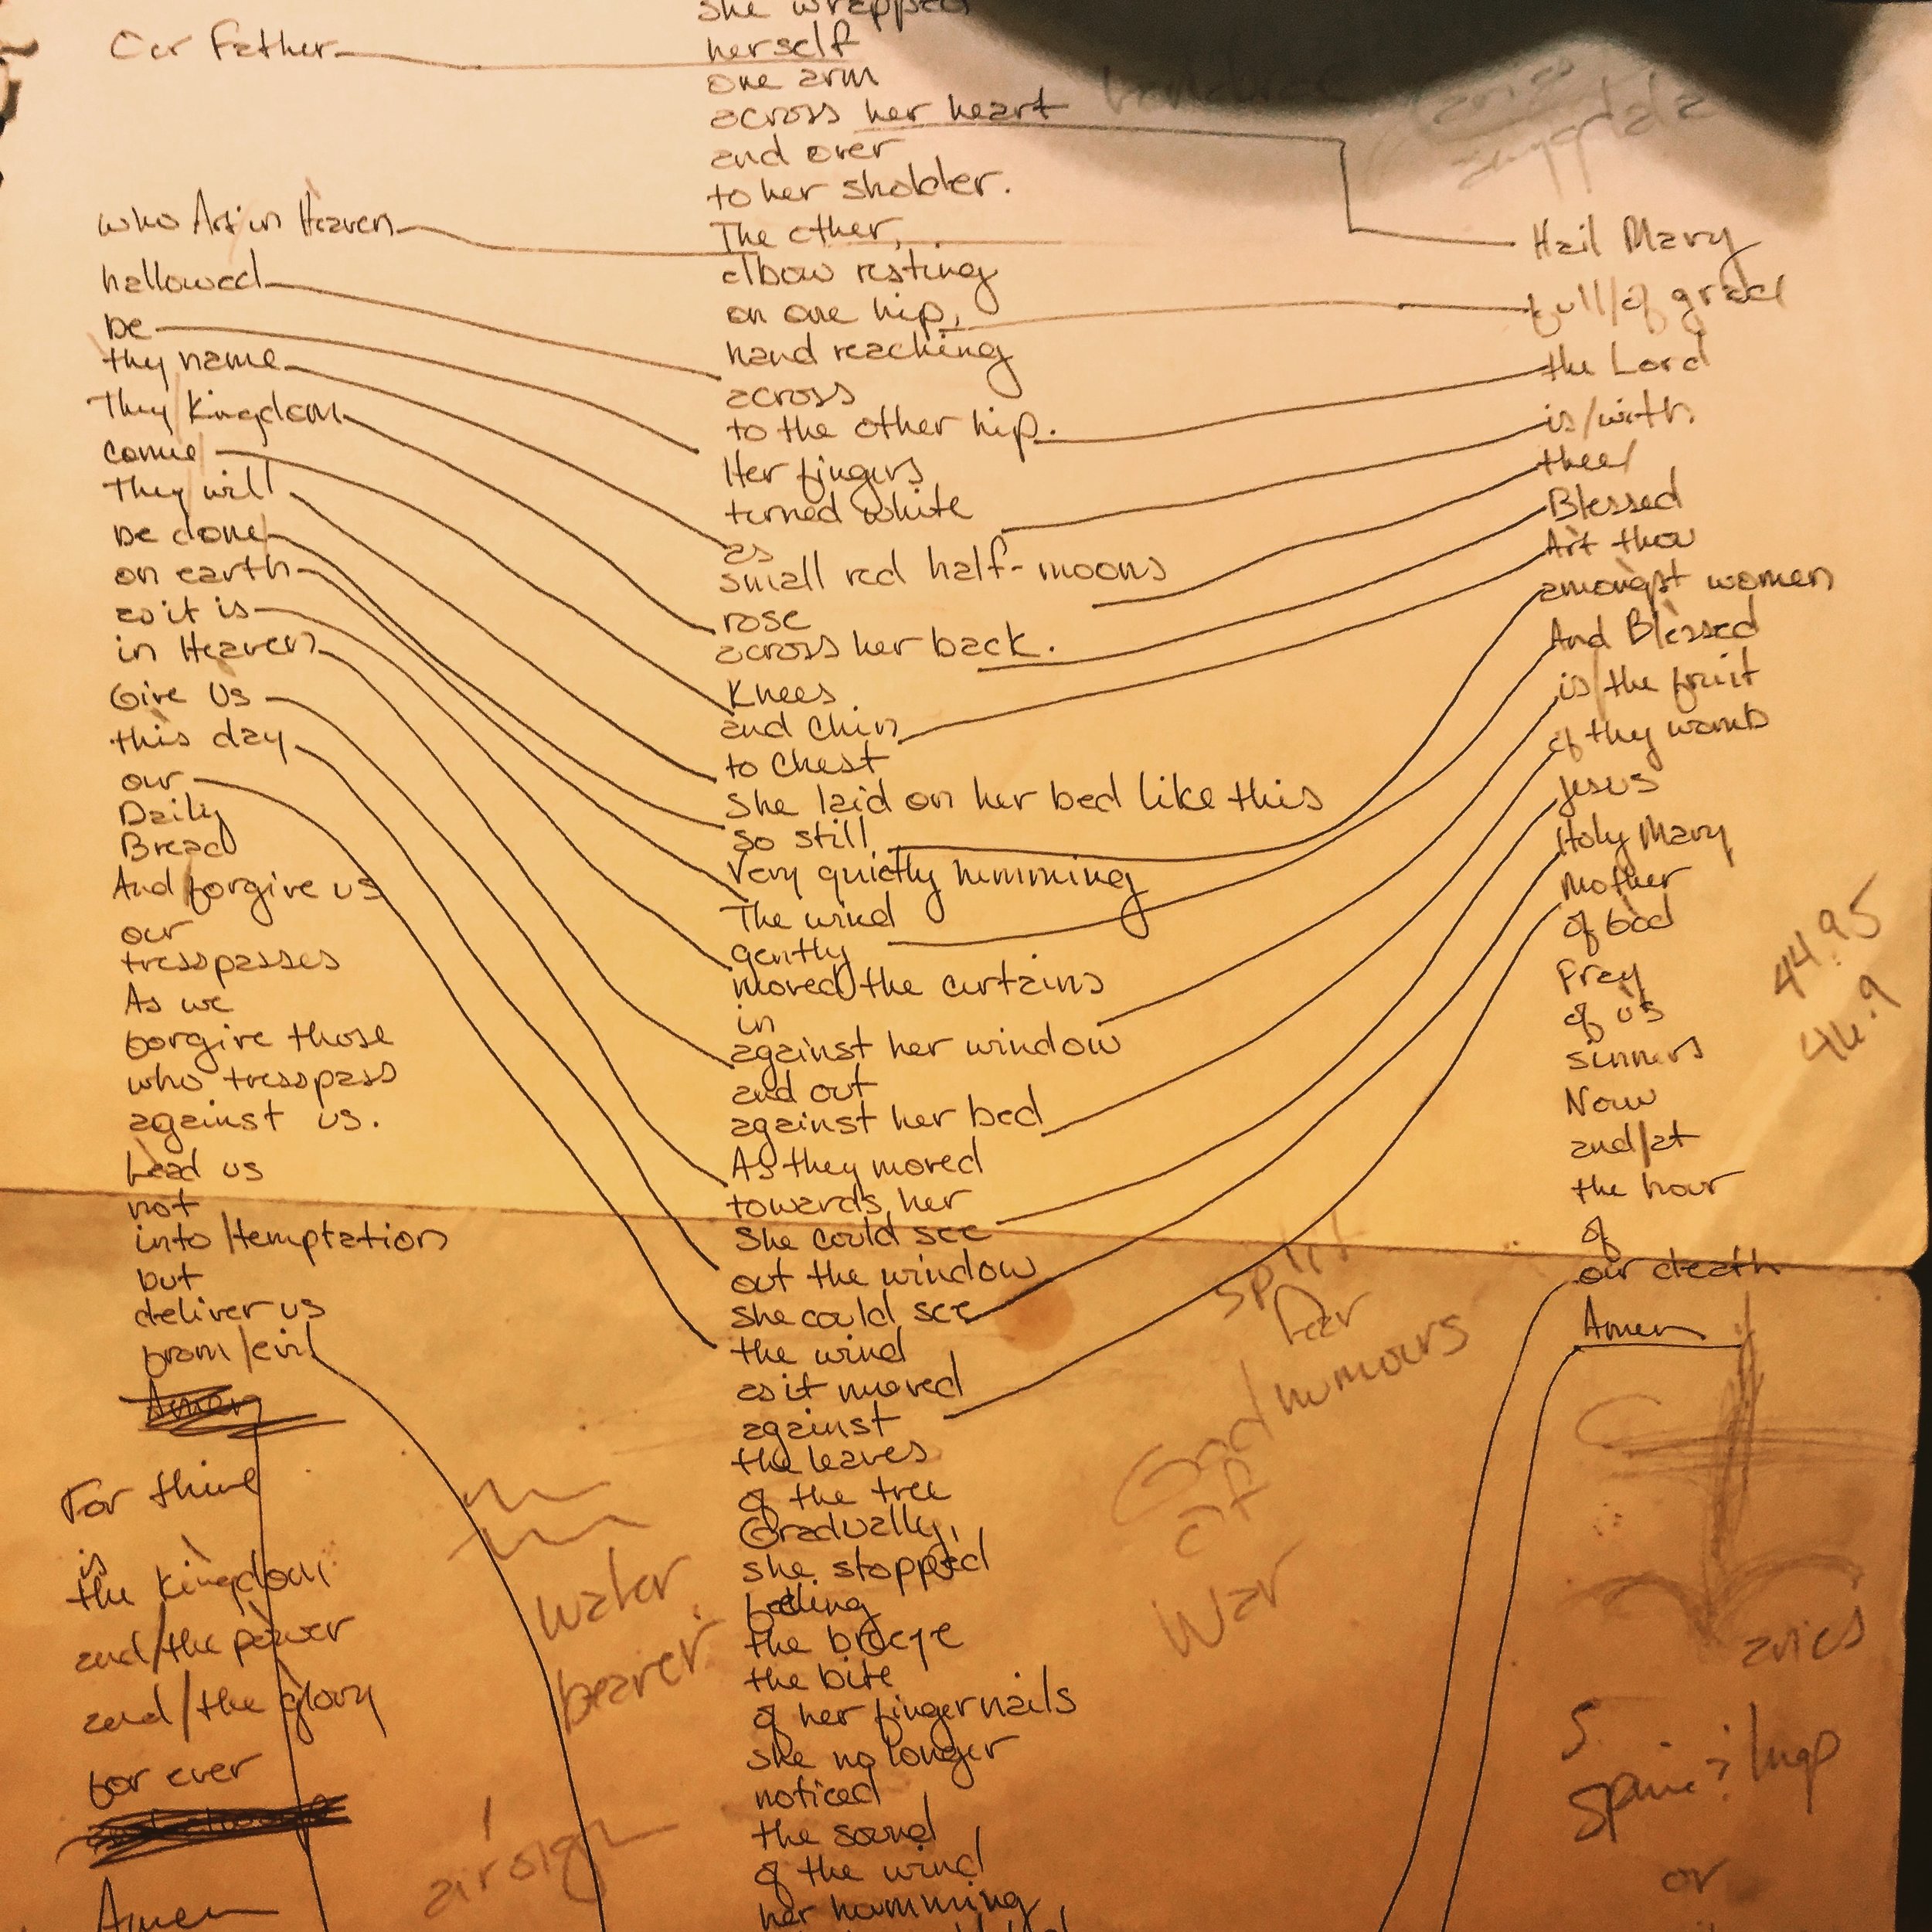 Our Father
who Art in Heaven
hallowed
be
thy name
They Kingdom
come
They will
be done
on earth
as it is
in Heaven
Give Us
this day
our
Daily
Bread
And forgive us
our
tresspasses
As we
forgive those
who tresspass
against us.
Lead us
not
into/temptation
but
deliver us
from/evil
Amen
For thine
is
the kingdom
and/the power
and/the glory
for ever
Amen
she wrapped
herself
one arm
across her heart
and over
to her sholder.
The other,
elbow resting
on one hip,
hand reaching
across
to the other hip.
Her fingers
turned white
as
small red half-moons
rose
across her back.
Knees
and chin
to chest
She laid on her bed like this
so still
Very quietly humming
The wind
gently
moved the curtains
in
against her window
and out
against her bed
As they moved
towards her
She could see
out the window
she could see
the wind
as it moved
against
the leaves
of the tree
Gradually,
she stopped
feeling
the breeze
the bite
of her fingernails
she no longer
noticed
the sound
of the wind
her humming
Hail Mary
full/of grace
the Lord
is/with
thee/
Blessed
Art thou
amongst women
And Blessed
is/the fruit
of thy womb
Jesus
Holy Mary
Mother
of God
Pray
of us
sinners
Now
and/at
the hour
of
our death
Amen
44.95
46.9
split
Far
God/humours
of
War
water
bearer
air sign
aries
S.
or